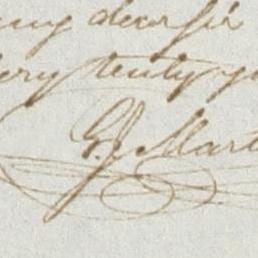 my dear sir
very truly yo
G. J. Mart